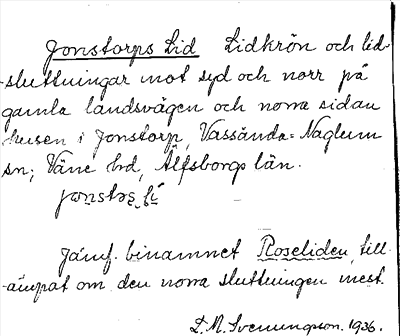 Jonstorps Lid Lidkrön och lid-
-sluttningar mot syd och norr på
gamla landsvägen och norra sidan
husen i Jonstorp, Vassända-Naglum
sn; Väne hd, Älfsborgs län.
Jämf. binamnet Roseliden, till-
-ämpat om den norra sluttningen mest.
D.A. Svenungsson. 1936.